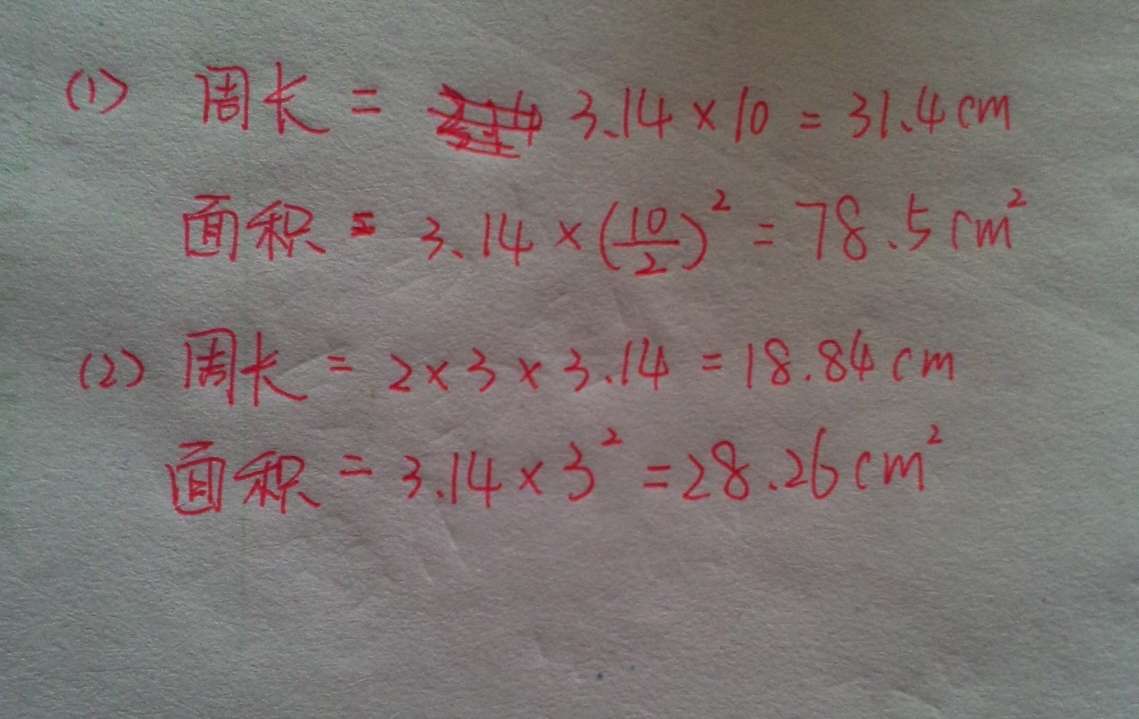 (1) 周长 = 3.14 × 10 = 31.4 cm
面积 = 3.14 × (10/2)² = 78.5 cm²
(2) 周长 = 2 × 3 × 3.14 = 18.84 cm
面积 = 3.14 × 3² = 28.26 cm²